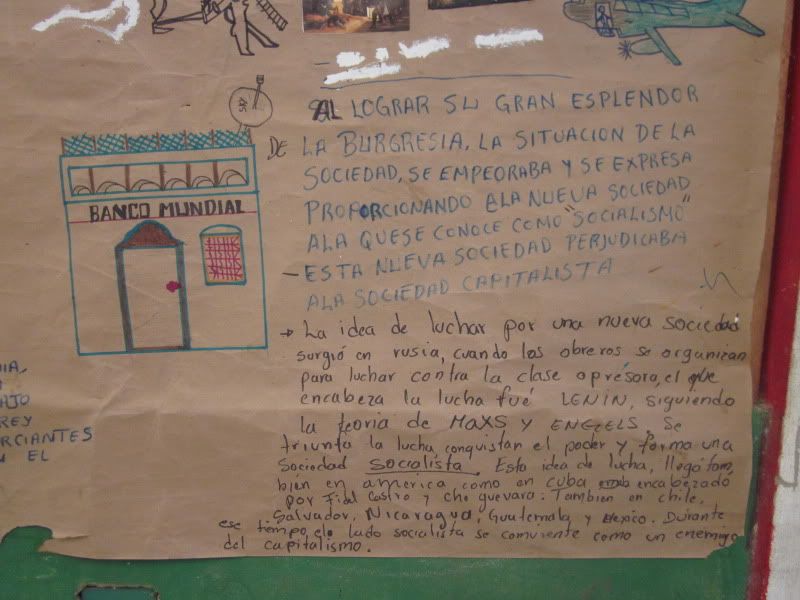 AL LOGRAR SU GRAN ESPLENDOR
DE LA BURGRESIA, LA SITUACION DE LA
SOCIEDAD, SE EMPEORABA Y SE EXPRESA
PROPORCIONANDO A LA NUEVA SOCIEDAD
ALA QUESE CONOCE COMO "SOCIALISMO"
- ESTA NUEVA SOCIEDAD PERJUDICABA
ALA SOCIEDAD CAPITALISTA
BANCO MUNDIAL
→ La idea de luchar por una nueva sociedad
surgió en rusia, cuando los obreros se organizan
para luchar contra la clase opresora, el que
encabeza la lucha fué LENIN, siguiendo
la teoria de MAXS Y ENGELS. Se
triunfa la lucha, conquistan el poder y forma una
Sociedad Socialista. Esta idea de lucha, llegó tam
bien en america como en cuba encabezado
por Fidel Castro y che guevara. Tambien en chile,
Salvador, Nicaragua, Guatemala y Mexico. Durante
ese tiempo, el lado socialista se comvirente como un enemigo
del capitalismo.
AJO
REY
ORCIANTES
EL